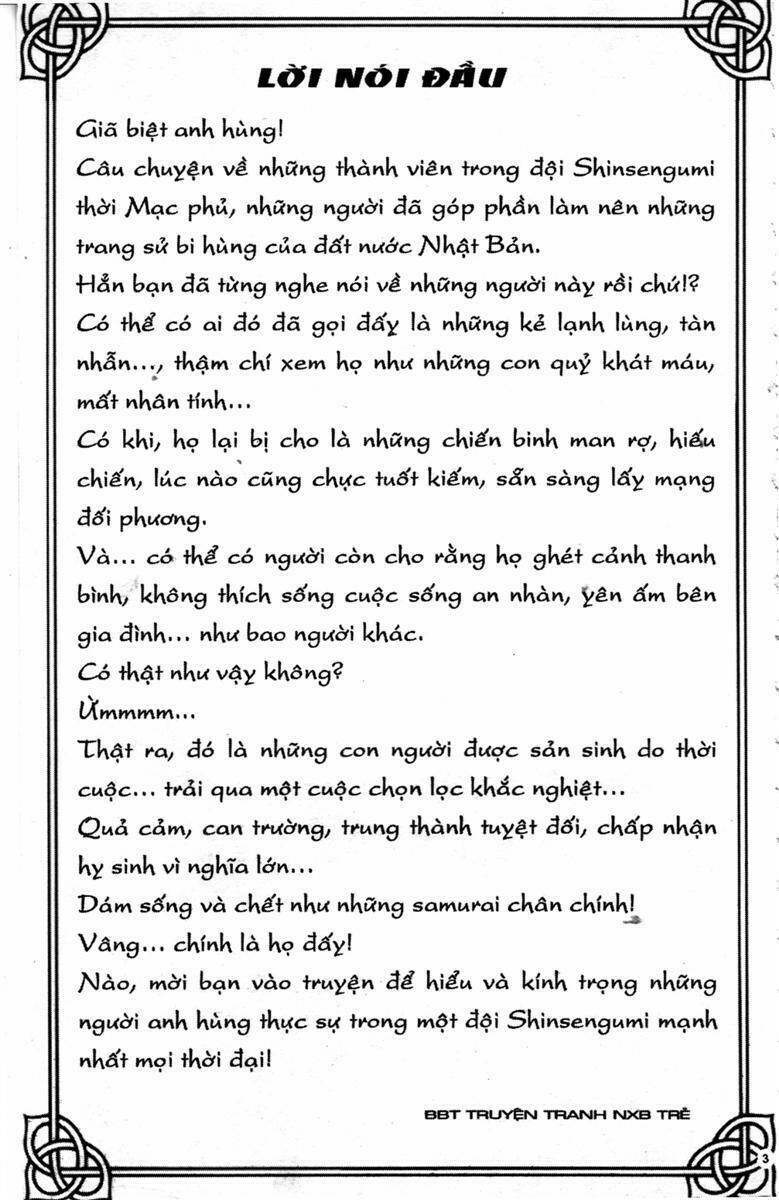 LỜI NÓI ĐẦU
Giã biệt anh hùng!
Câu chuyện về những thành viên trong đội Shinsengumi
thời Mạc phủ, những người đã góp phần làm nên những
trang sử bi hùng của đất nước Nhật Bản.
Hẳn bạn đã từng nghe nói về những người này rồi chứ!?
Có thể có ai đó đã gọi đấy là những kẻ lạnh lùng, tàn
nhẫn..., thậm chí xem họ như những con quỷ khát máu,
mất nhân tính...
Có khi, họ lại bị cho là những chiến binh man rợ, hiếu
chiến, lúc nào cũng chực tuốt kiếm, sẵn sàng lấy mạng
đối phương.
Và... có thể có người còn cho rằng họ ghét cảnh thanh
bình, không thích sống cuộc sống an nhàn, yên ấm bên
gia đình... như bao người khác.
Có thật như vậy không?
Ừmmmm...
Thật ra, đó là những con người được sản sinh do thời
cuộc... trải qua một cuộc chọn lọc khắc nghiệt...
Quả cảm, can trường, trung thành tuyệt đối, chấp nhận
hy sinh vì nghĩa lớn...
Dám sống và chết như những samurai chân chính!
Vâng... chính là họ đấy!
Nào, mời bạn vào truyện để hiểu và kính trọng những
người anh hùng thực sự trong một đội Shinsengumi mạnh
nhất mọi thời đại!
BBT TRUYỆN TRANH NXB TRẺ
3